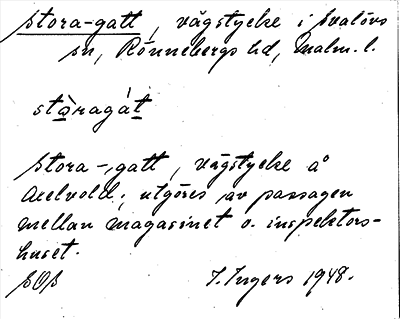 stora-gatt, vägstycke i Svalövs
sn, Rönnebergs hd, Malm. l.
stòragát
stora-,gatt, vägstycke å
Axelvold; utgöres av passagen
mellan magasinet o. inspektors-
huset.
SOS I. Ingers 1948.